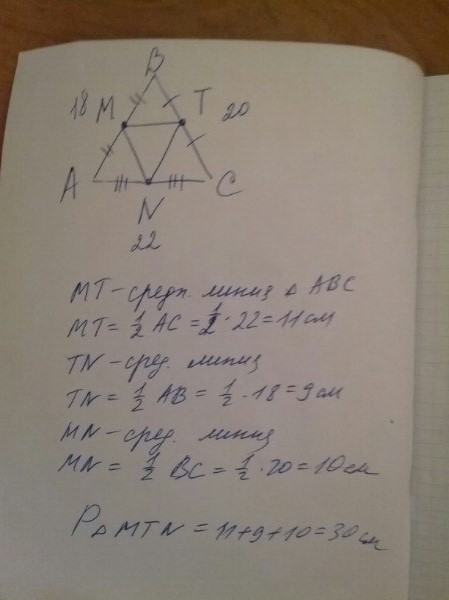 B
18 M T 20
A C
N
22
MT - средн. линия △ ABC
MT = 1/2 AC = 1/2 · 22 = 11 см
TN - сред. линия
TN = 1/2 AB = 1/2 · 18 = 9 см
MN - сред. линия
MN = 1/2 BC = 1/2 · 20 = 10 см
P△MTN = 11+9+10 = 30 см